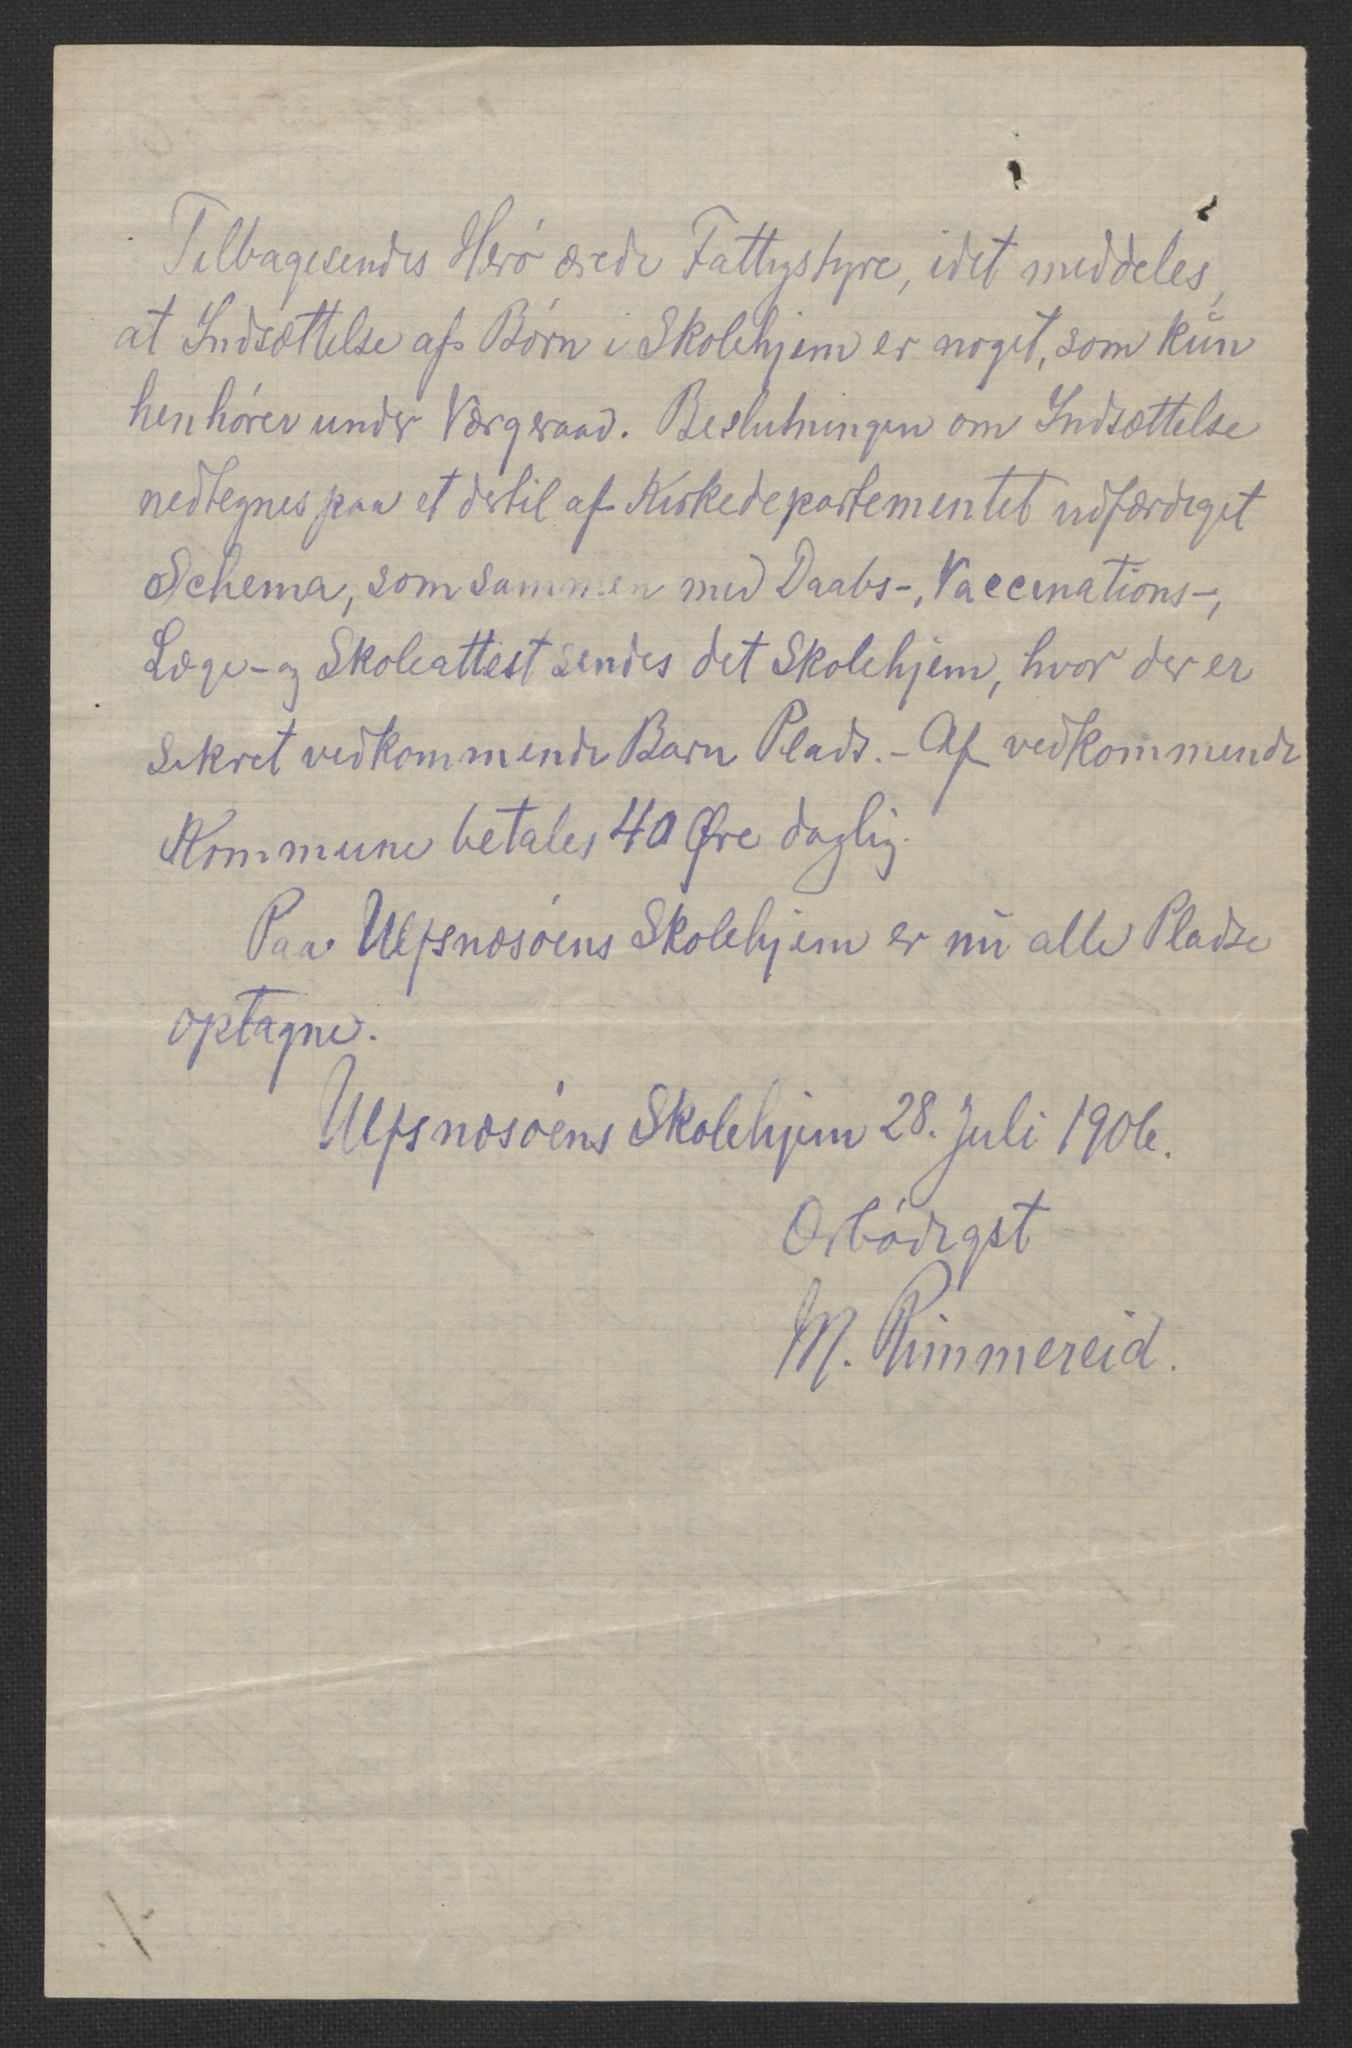 Tilbagesendes Herø ærede Fattigstyre, idet meddeles,
at Indsættelse af Børn i Skolehjem er noget, som kun
henhører under Værgeraad. Beslutningen om Indsættelse
nedtegnes paa et dertil af Kirkedepartementet udfærdiget
Schema, som sammen med Daabs-, Vaccinations-,
Læge- og Skoleattest sendes det Skolehjem, hvor der er
sikret vedkommende Barn Plads. - Af vedkommende
Kommune betales 40 Øre daglig.
Paa Ulfsnæsøens Skolehjem er nu alle Pladse
optagne.
Ulfsnæsøens Skolehjem 28. Juli 1906.
Ærbødigst
M. Rimmereid.